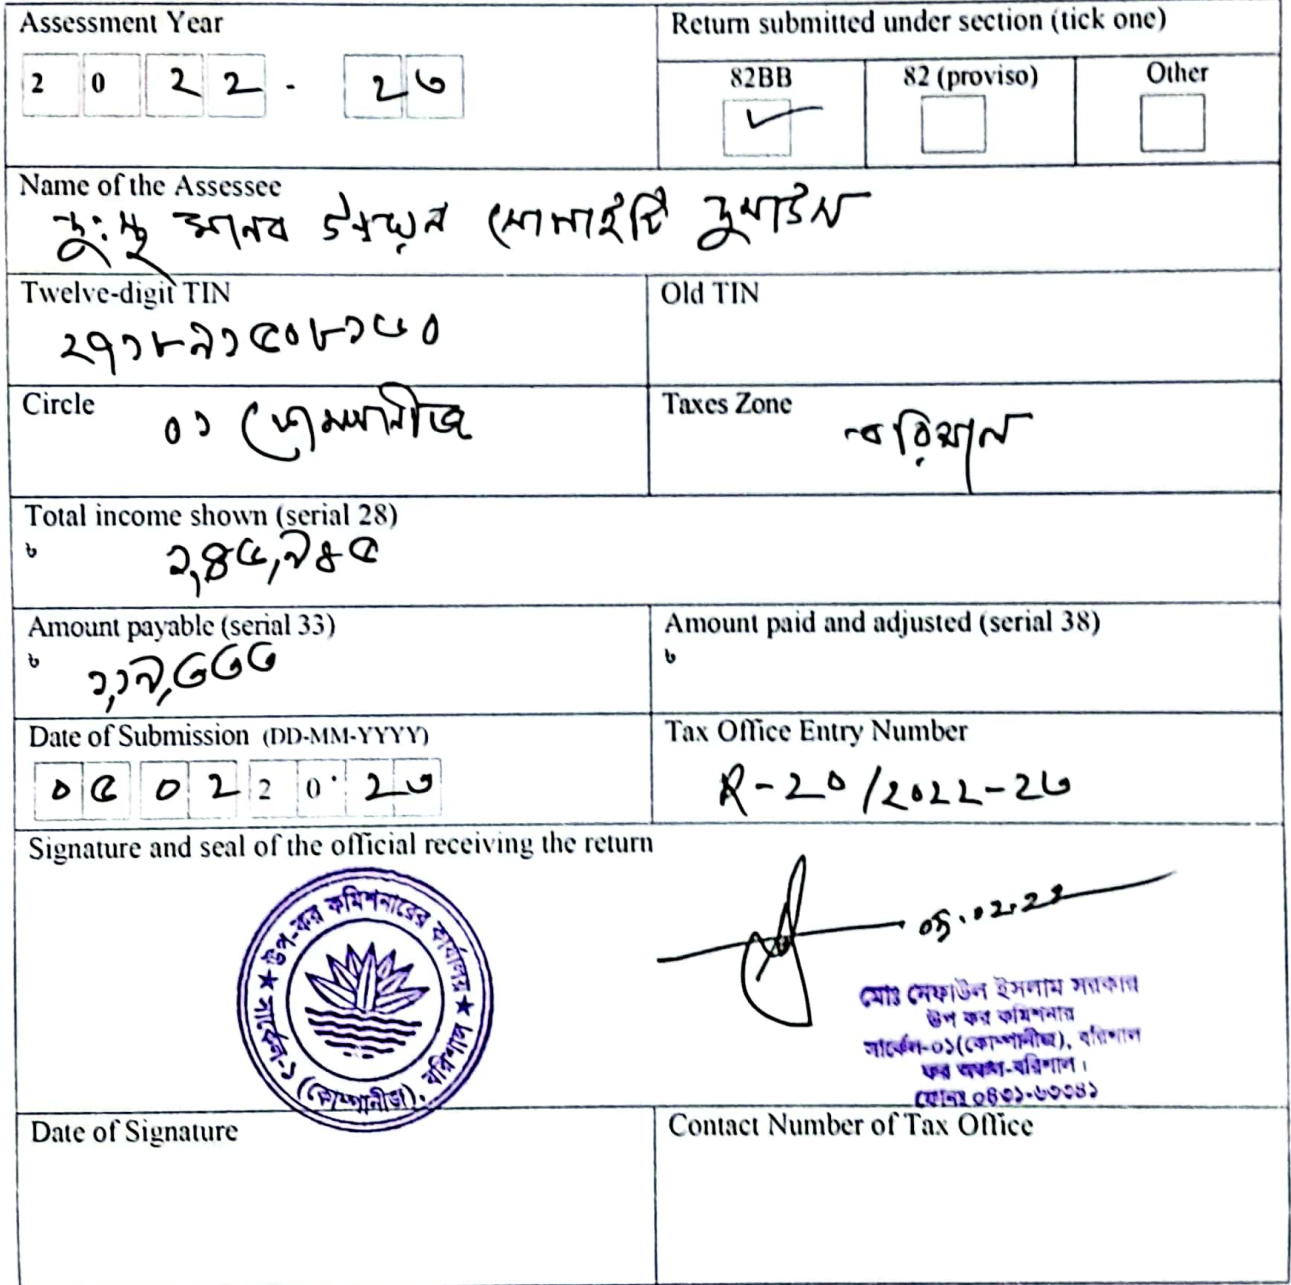 Assessment Year
2 0 ২ ২ - ২৩
Return submitted under section (tick one)
82BB
82 (proviso)
Other
Name of the Assessee
দুঃস্থ মানব উন্নয়ন সোসাইটি দুমাউস
Twelve-digit TIN
২৭১৮৯১৫০৮১৫০
Old TIN
Circle
০১ কোম্পানীজ
Taxes Zone
বরিশাল
Total income shown (serial 28)
৳
Amount payable (serial 33)
৳
Amount paid and adjusted (serial 38)
৳
Date of Submission (DD-MM-YYYY)
০৫ ০২ 2 0 ২৩
Tax Office Entry Number
R-২০/২০২২-২৩
Signature and seal of the official receiving the return
★ উপ-কর কমিশনারের কার্যালয় ★
সার্কেল-১ (কোম্পানীজ), বরিশাল
০৫.০২.২৩
ইসলাম সরকার
উপ কর কমিশনার
সার্কেল-০১(কোম্পানীজ), বরিশাল
কর অঞ্চল-বরিশাল।
Date of Signature
Contact Number of Tax Office